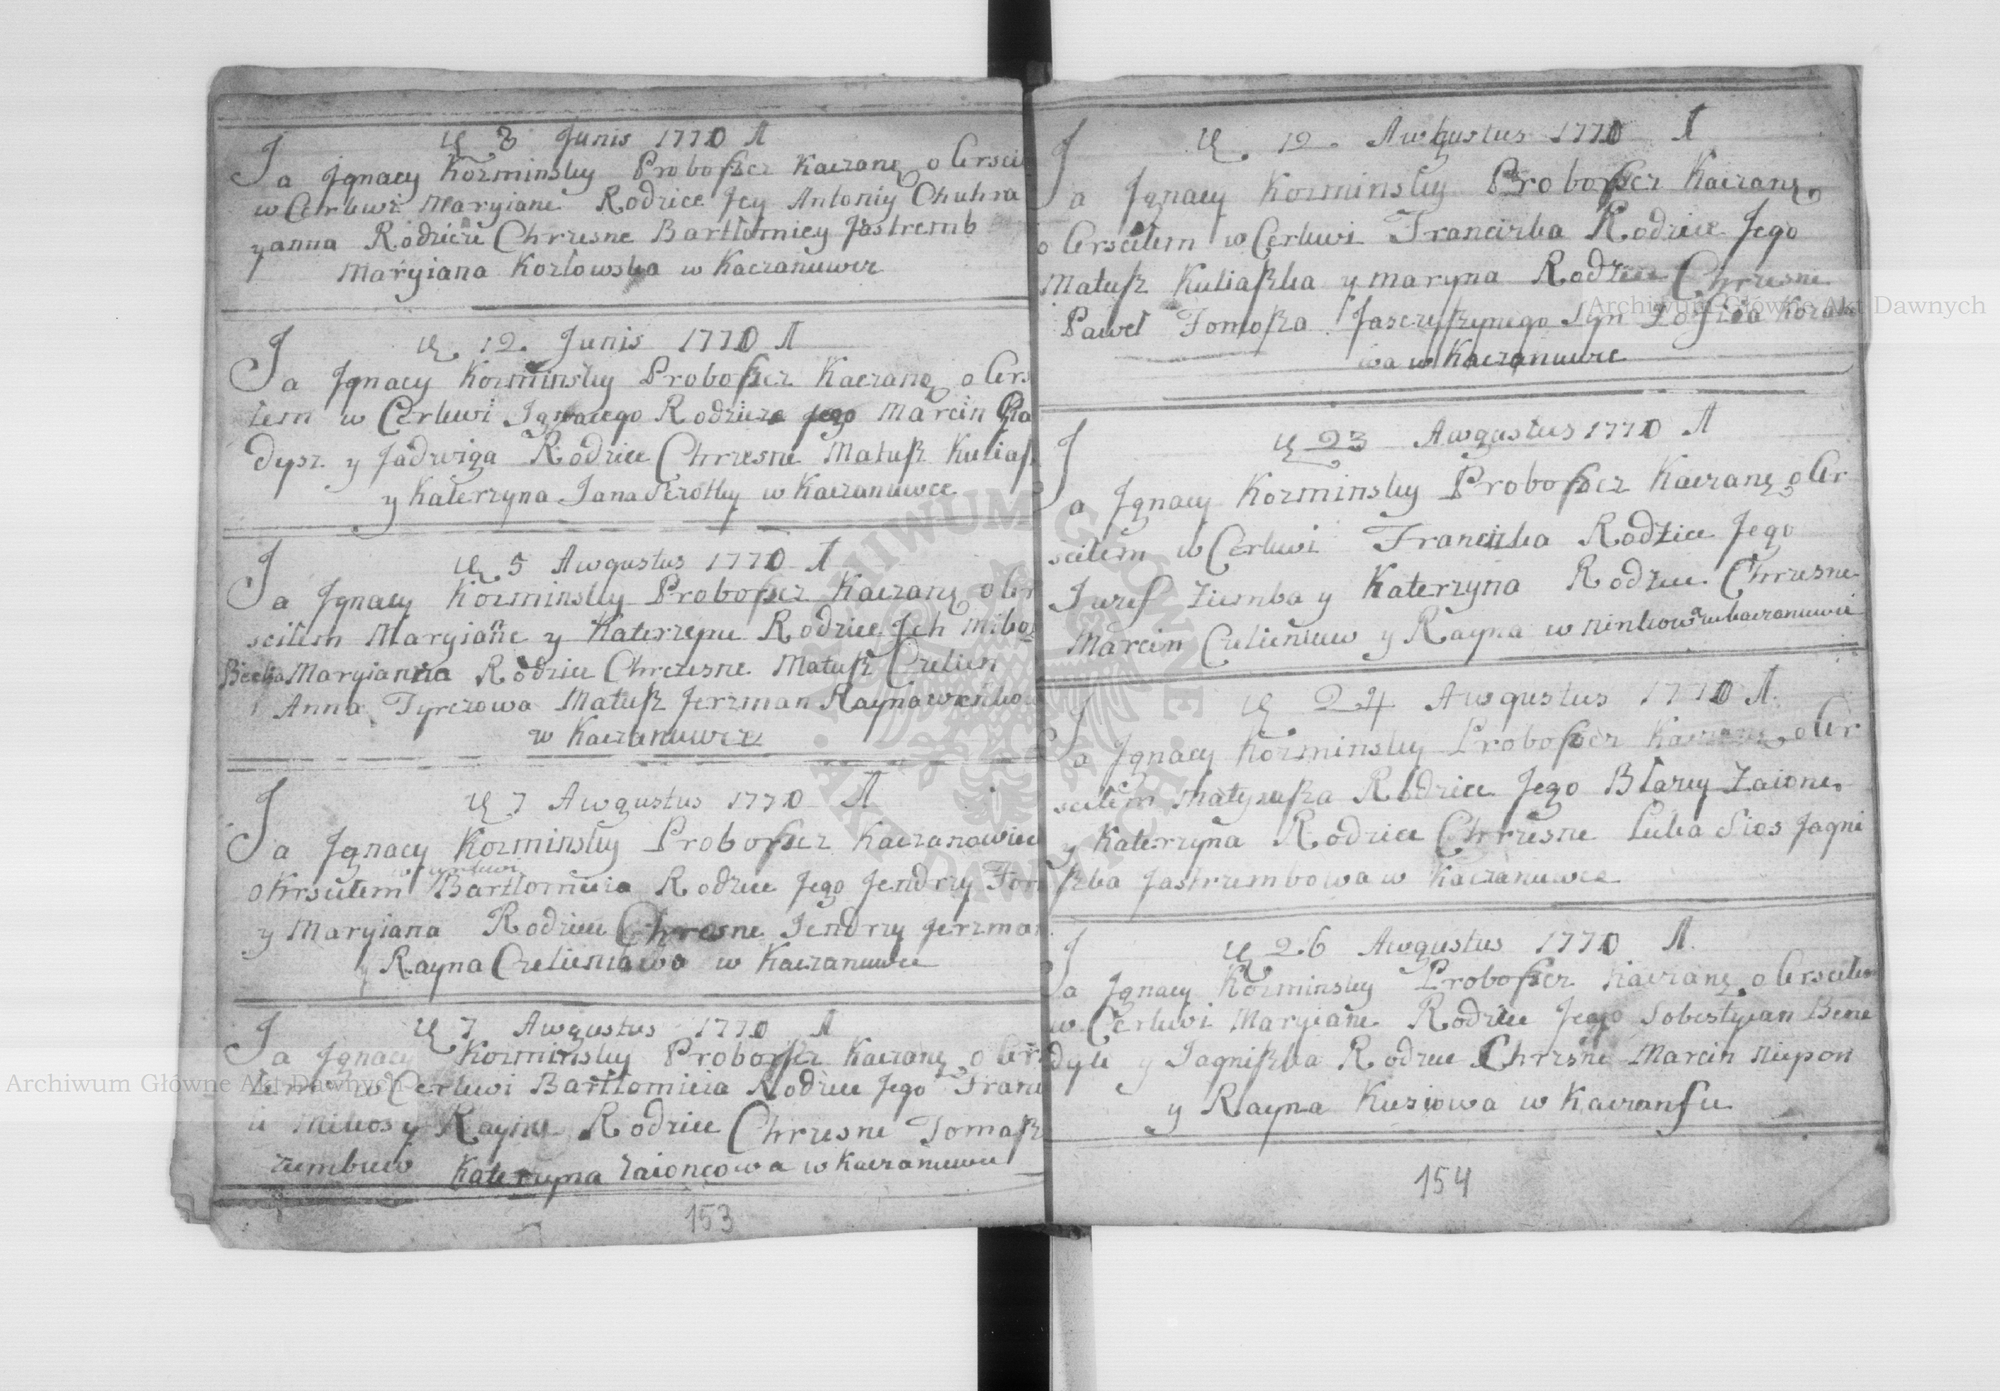 3 Junis 1770 A
Ja Jgnacy Kozminsky Proboszcz Kaczang o Crsci
w Cerkwi Maryiane Rodzice Jey Antoniy Chuhra
y anna Rodzice Chrzesne Bartłomiey Jastremb
Maryiana Kozłowska w Kaczanuwce
12 Junis 1770 A
Ja Jgnacy Kozminsky Proboszcz Kaczang o Crs
łem w Cerkwi Jgnacego Rodzice Jego Marcin Gła
dysz y Jadwiga Rodzice Chrzesne Matusz Kuliasz
y Katerzyna Jana w Kaczanuwce
5 Awgustus 1770 A
Ja Jgnacy Kozminsky Proboszcz Kaczang o Cr
sciłem Maryiane y Katerzyne Rodzice Jch
Maryianna Rodzice Chrzesne Matusz Czelien
Anna Tyrczowa Matusz Jerzman Rayna
w Kaczanuwce
7 Awgustus 1770 A
Ja Jgnacy Kozminsky Proboszcz Kaczanowiec
w Cerkwi
okrsciłem Bartłomieia Rodzice Jego Jendrzy Tom
y Maryiana Rodzice Chrzesne Jendrzy Jerzman
y Rayna Czelieniowa w Kaczanuwce
7 Awgustus 1770 A
Ja Jgnacy Kozminsky Proboszcz Kaczang o Crsci
łem w Cerkwi Bartłomieia Rodzice Jego Franc
Mikos y Rayna Rodzice Chrzesne Tomasz
Katerzyna Zaioncowa w Kaczanuwce
153
12 Awgustus 1770 A
Ja Jgnacy Kozminsky Proboszcz Kaczang
o Crsciłem w Cerkwi Franciszka Rodzice Jego
Matusz Kuliaszka y Maryna Rodzice Chrzesne
Paweł Tomasza Syn Zofiia Koza
wa w Kaczanuwce
23 Awgustus 1770 A
Ja Jgnacy Kozminsky Proboszcz Kaczang o Cr
sciłem w Cerkwi Franciszka Rodzice Jego
Juzef Ziemba y Katerzyna Rodzice Chrzesne
Marcin Czelieniuw y Rayna w Kaczanuwce
24 Awgustus 1770 A
Ja Jgnacy Kozminsky Proboszcz Kaczang o Cr
sciłem Matyuszа Rodzice Jego Błazey Zaionc
y Katerzyna Rodzice Chrzesne Łuka Sios Jagni
szka Jastrzembowa w Kaczanuwce
26 Awgustus 1770 A
Ja Jgnacy Kozminsky Proboszcz Kaczang o Crsciłem
w Cerkwi Maryiane Rodzice Jego Sobestyian Bene
dyk y Jagniszka Rodzice Chrzsne Marcin Niepon
y Rayna Kusiowa w Kaczansce
154
Archiwum Główne Akt Dawnych
Archiwum Główne Akt Dawnych
ARCHIWUM GŁÓWNE
AKT DAWNYCH